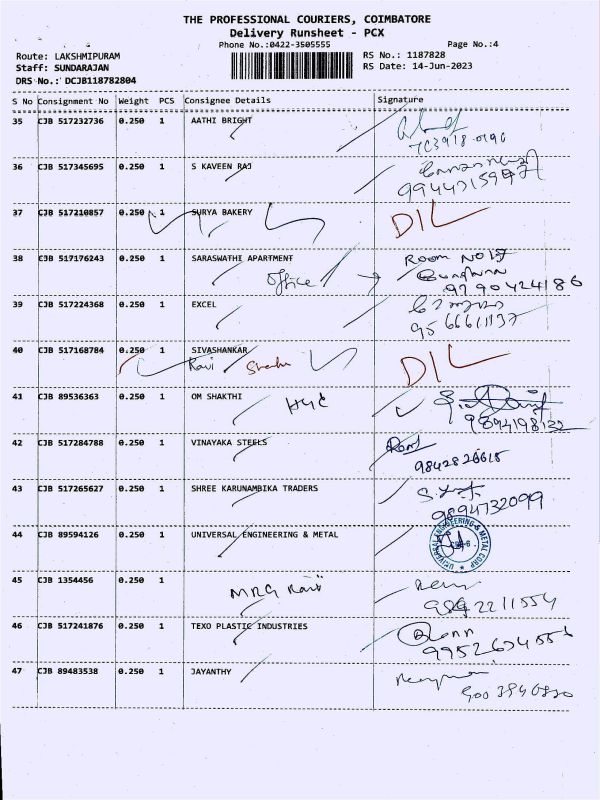 THE PROFESSIONAL COURIERS, COIMBATORE
Delivery Runsheet - PCX
Phone No.:0422-3505555 Page No.:4
Route: LAKSHMIPURAM RS No.: 1187828
Staff: SUNDARAJAN RS Date: 14-Jun-2023
DRS No.: DCJB118782804
S No Consignment No Weight PCS Consignee Details Signature
35 CJB 517232736 0.250 1 AATHI BRIGHT
36 CJB 517345695 0.250 1 S KAVEEN RAJ
37 CJB 517210857 0.250 1 SURYA BAKERY DIL
38 CJB 517176243 0.250 1 SARASWATHI APARTMENT Room No 17
Office
9790424186
39 CJB 517224368 0.250 1 EXCEL
9566611137
40 CJB 517168784 0.250 1 SIVASHANKAR DIL
Ravi
41 CJB 89536363 0.250 1 OM SHAKTHI
9894198132
42 CJB 517284788 0.250 1 VINAYAKA STEELS
9842826615
43 CJB 517265627 0.250 1 SHREE KARUNAMBIKA TRADERS
9894732099
44 CJB 89594126 0.250 1 UNIVERSAL ENGINEERING & METAL
UNIVERSAL ENGINEERING & METAL CORP
45 CJB 1354456 0.250 1
MRG Ravi
46 CJB 517241876 0.250 1 TEXO PLASTIC INDUSTRIES
47 CJB 89483538 0.250 1 JAYANTHY